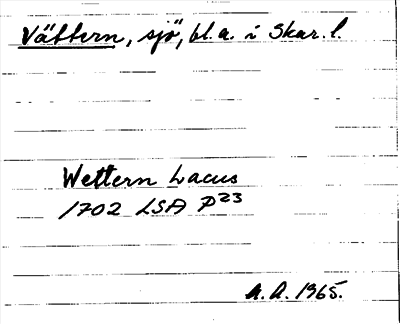 Vättern, sjö, bl.a. i Skar. l.
Wettern Lacus
1702 LSA P23
A.A. 1965.